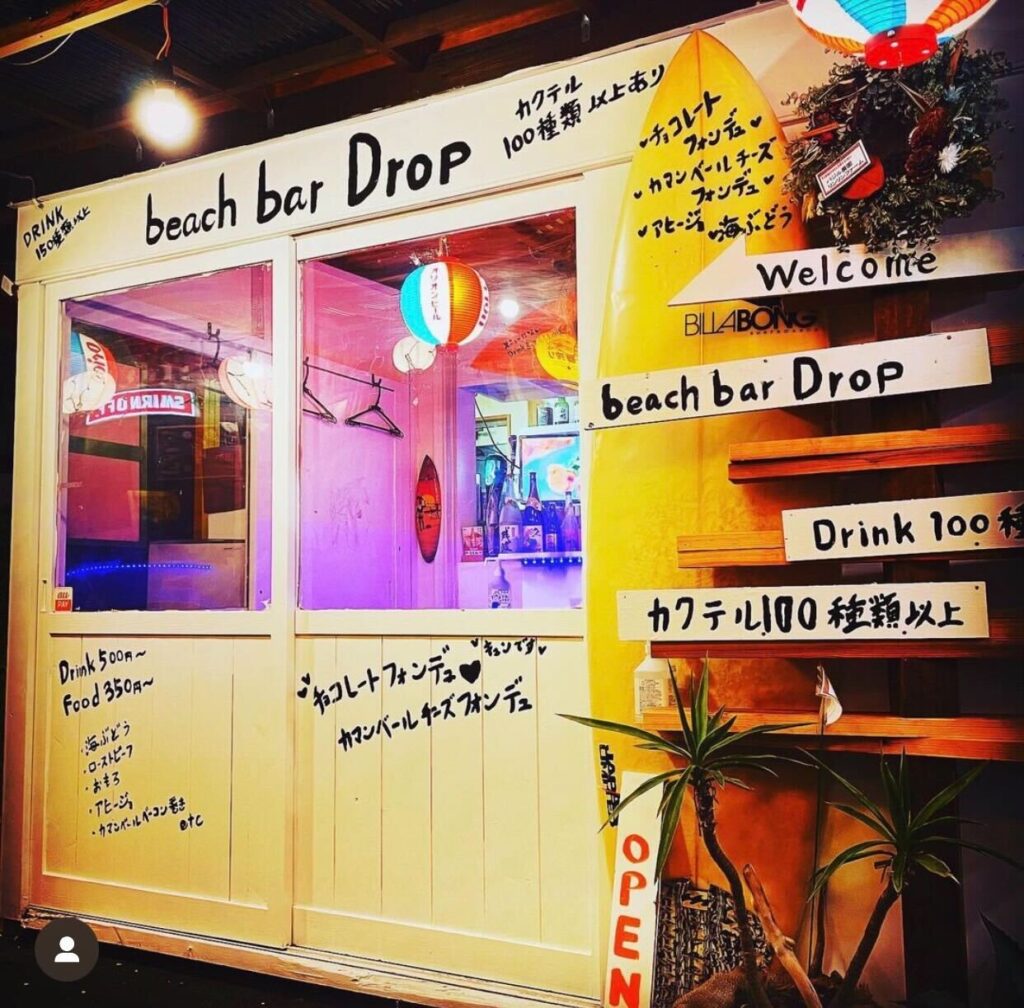 beach bar Drop
カクテル
100種類以上あり
DRINK
150種類以上
♥チョコレート
フォンデュ♥
♥カマンベールチーズ
フォンデュ♥
♥アヒージョ ♥海ぶどう
Welcome
BILLABONG
beach bar Drop
Drink 100種
カクテル100種類以上
オリオンビール
SMIRNOFF
PAY
Drink 500円~
Food 350円~
・海ぶどう
・ローストビーフ
・おもろ
・アヒージョ
・カマンベールベーコン巻き
etc
♥チョコレートフォンデュ♥
♥キュンです♥
カマンベールチーズフォンデュ
OPEN